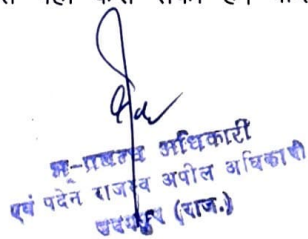 नहीं करा सका
भू-प्रबन्ध अधिकारी
एवं पदेन राजस्व अपील अधिकारी
उदयपुर (राज.)